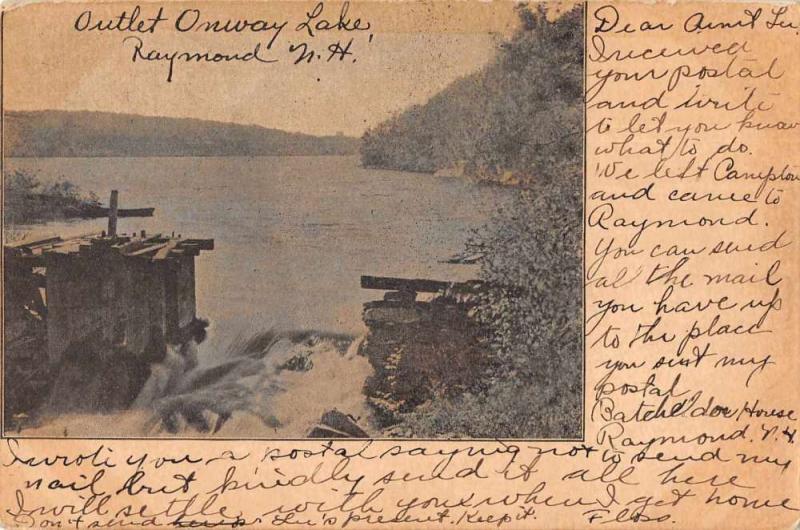 Outlet Onway Lake,
Raymond N.H.
Dear Aunt Lu.
I received
your postal
and write
to let you know
what to do.
We left Campton
and came to
Raymond.
You can send
all the mail
you have up
to the place
you sent my
postal
Batchelder House
Raymond. N.H
I wrote you a postal saying not to send my
mail but kindly send it all here
I will settle with you when I get home
Don't send Lu's present. Keep it. Floss.